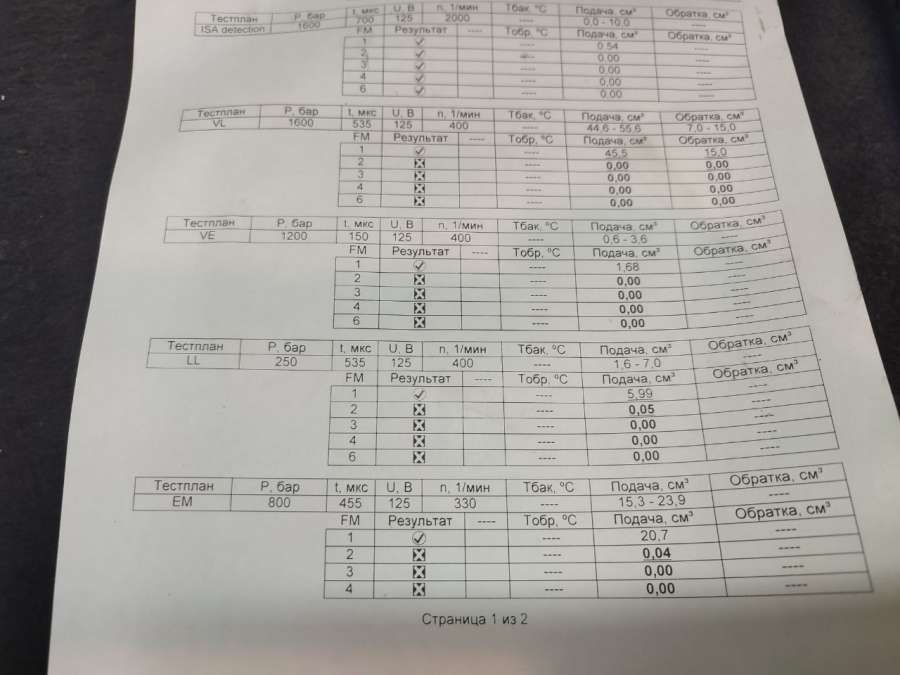 Тестплан P, бар t, мкс U, В n, 1/мин Тбак, ºC Подача, см³ Обратка, см³
ISA detection 1600 700 125 2000 ---- 0,0 - 10,0 ----
FM Результат ---- Тобр, ºC Подача, см³ Обратка, см³
1 ---- 0,54 ----
2 ---- 0,00 ----
3 ---- 0,00 ----
4 ---- 0,00 ----
6 ---- 0,00 ----
Тестплан P, бар t, мкс U, В n, 1/мин Тбак, ºC Подача, см³ Обратка, см³
VL 1600 535 125 400 ---- 44,6 - 55,6 7,0 - 15,0
FM Результат ---- Тобр, ºC Подача, см³ Обратка, см³
1 ---- 45,5 15,0
2 ---- 0,00 0,00
3 ---- 0,00 0,00
4 ---- 0,00 0,00
6 ---- 0,00 0,00
Тестплан P, бар t, мкс U, В n, 1/мин Тбак, ºC Подача, см³ Обратка, см³
VE 1200 150 125 400 ---- 0,6 - 3,6 ----
FM Результат ---- Тобр, ºC Подача, см³ Обратка, см³
1 ---- 1,68 ----
2 ---- 0,00 ----
3 ---- 0,00 ----
4 ---- 0,00 ----
6 ---- 0,00 ----
Тестплан P, бар t, мкс U, В n, 1/мин Тбак, ºC Подача, см³ Обратка, см³
LL 250 535 125 400 ---- 1,6 - 7,0 ----
FM Результат ---- Тобр, ºC Подача, см³ Обратка, см³
1 ---- 5,99 ----
2 ---- 0,05 ----
3 ---- 0,00 ----
4 ---- 0,00 ----
6 ---- 0,00 ----
Тестплан P, бар t, мкс U, В n, 1/мин Тбак, ºC Подача, см³ Обратка, см³
EM 800 455 125 330 ---- 15,3 - 23,9 ----
FM Результат ---- Тобр, ºC Подача, см³ Обратка, см³
1 ---- 20,7 ----
2 ---- 0,04 ----
3 ---- 0,00 ----
4 ---- 0,00 ----
Страница 1 из 2